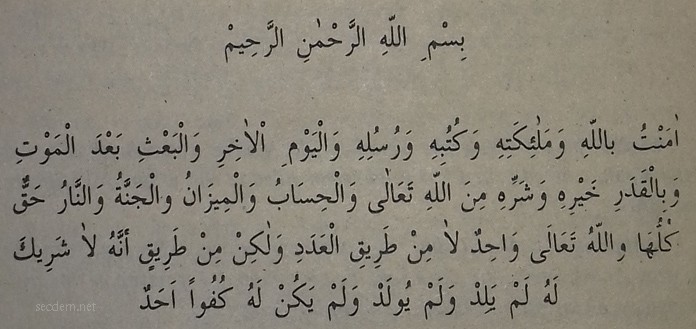 بِسْمِ اللّٰهِ الرَّحْمٰنِ الرَّحِيمْ
اٰمَنْتُ بِاللّٰهِ وَمَلٰئِكَتِهِ وَكُتُبِهِ وَرُسُلِهِ وَالْيَوْمِ اْلاٰخِرِ وَالْبَعْثِ بَعْدَ الْمَوْتِ
وَبِالْقَدَرِ خَيْرِهِ وَشَرِّهِ مِنَ اللّٰهِ تَعَالٰى وَالْحِسَابُ وَالْمِيزَانُ والْجَنَّةُ وَالنَّارُ حَقٌّ
كُلُّهَا واللّٰهُ تَعَالَى وَاحِدٌ لاَ مِنْ طَرِيقِ الْعَدَدِ وَلٰكِنْ مِنْ طَرِيقٍ أنَّهُ لاَ شَرِيكَ
لَهُ لَمْ يَلِدْ وَلَمْ يُولَدْ وَلَمْ يَكُنْ لَهُ كُفُواً اَحَدٌ
seodem.net